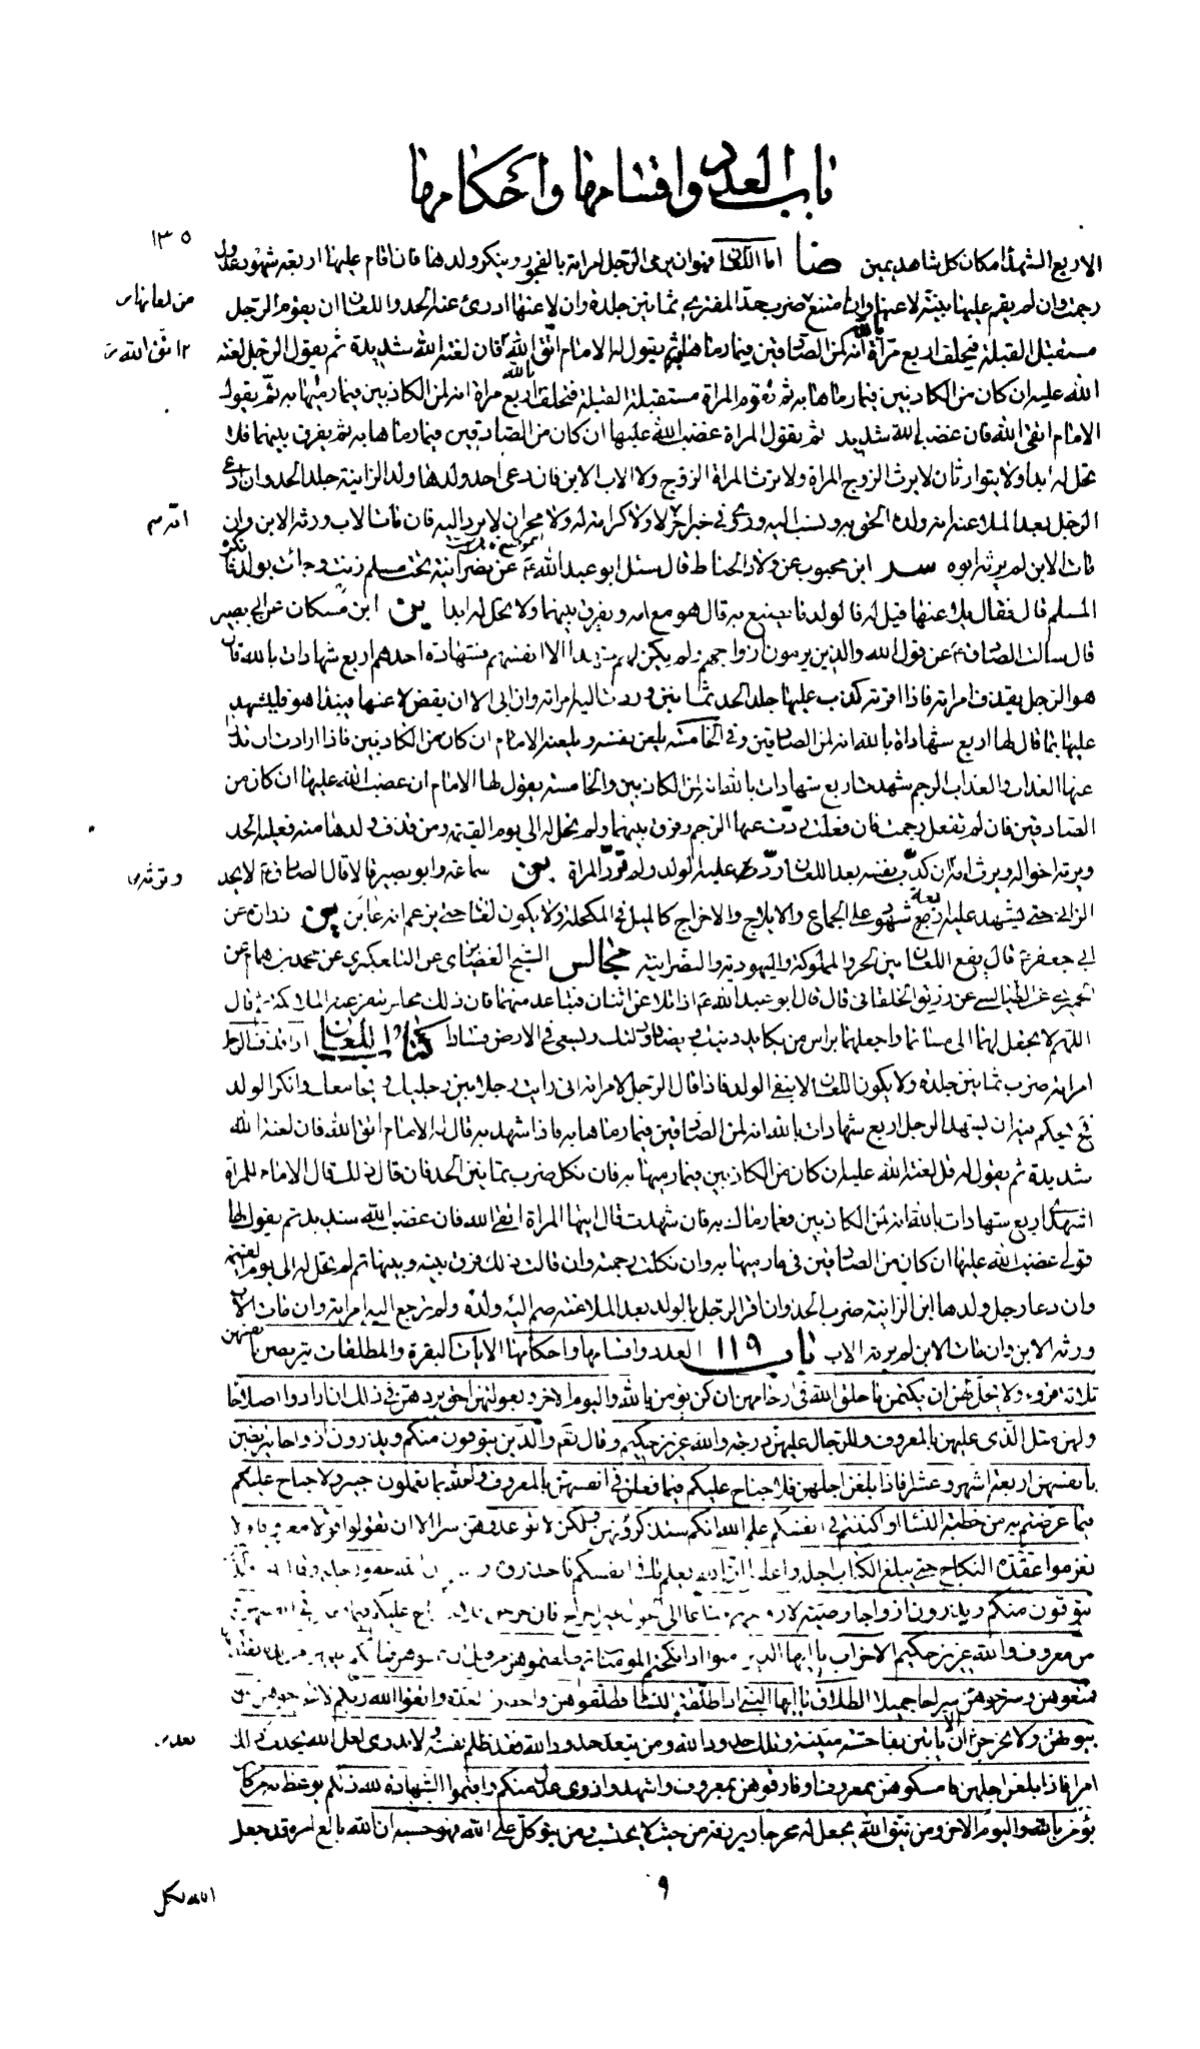 باب العدد واقسامها واحكامها
١٣٥
الاربع الشهداء مكان كل شاهد يمين ضا اما اللعان فهو ان يرمي الرجل امراته بالفجور وينكر ولدها فان اقام عليها اربعة شهود عدول
رجمت وان لم يقم عليها بينة لاعنها وان امتنع من لعانها ضرب حد المفتري ثمانين جلدة وان لاعنها ادرئ عنه الحد واللعان ان يقوم الرجل
مستقبل القبلة فيحلف اربع مرات بالله انه لمن الصادقين فيما رماها به ثم يقول له الامام اتق الله فان لعنة الله شديدة ثم يقول الرجل لعنة
الله عليه ان كان من الكاذبين فيما رماها به ثم تقوم المراة مستقبلة القبلة فتحلف اربع مراة بالله انه لمن الكاذبين فيما رميها به ثم يقول
الامام اتقى الله فان غضب الله شديد ثم يقول المراة غضب الله عليها ان كان من الصادقين فيما رماها به ثم يفرق بينهما فلا
تحل له ابدا ولا يتوارثان لا يرث الزوج المراة ولا ترث المراة الزوج ولا الاب الابن فان دعى احد ولدها ولد الزانية جلد الحد وان ادعى
الرجل بعد الملاعنة انه ولده لحق به ونسب اليه وروي في خبر اخر لا ولا كرامة له ولا غرو ان لا يرد اليه فان مات الاب ورثه الابن وان
مات الابن لم يرثه ابوه سر ابن محبوب عن ولاد الحناط قال سئل ابو عبد الله ع عن نصرانية تحت مسلم زنت وجائت بولد فانكره
المسلم قال فقال يلاعنها قيل له فالولد ما يصنع به قال هو مع امه ويفرق بينهما ولا تحل له ابدا ين ابن مسكان عن ابي بصير
قال سالت الصادق ع عن قول الله والذين يرمون ازواجهم ولم يكن لهم شهداء الا انفسهم فشهادة احدهم اربع شهادات بالله قال
هو الرجل يقذف امراته فاذا اقر انه كذب عليها جلد الحد ثمانين وردت اليه امراته وان ابى الا ان يقضي لاعنها فيبدا هو فليشهد
عليها بما قال لها اربع شهاداة بالله انه لمن الصادقين وفي الخامسة يلعن نفسه ويلعنه الامام ان كان من الكاذبين فاذا ارادت ان تدرا
عنها العذاب والعذاب الرجم شهدت اربع شهادات بالله انه لمن الكاذبين والخامسة يقول لها الامام ان غضب الله عليها ان كان من
الصادقين فان لم تفعل رجمت فان فعلت درات عنها الرجم وفرق بينهما ولم تحل له الى يوم القيمة ومن قذف ولدها منه فعليه الحد
ويرثه اخواله ويرث امه وترثه ان كذب نفسه بعد اللعان رد عليه الولد ولم ترد المراة ين سماعة وابو بصير قالا قال الصادق ع لا يحد
الزاني حتى يشهد عليه اربعة شهود على الجماع والايلاج والاخراج كالميل في المكحلة ولا يكون لعان حتى يزعم انه عاين ين زرارة عن
ابي جعفر ع قال يقع اللعان بين الحر والمملوكة واليهودية والنصرانية مجالس الشيخ الغضايري عن التلعكبري عن محمد بن همام عن
الحميري عن الطيالسي عن رزيق الخلقاني قال قال ابو عبد الله ع اذا تلاعن اثنان فتباعد منهما فان ذلك مجلس تنفر عنه الملائكة ثم قال
اللهم لا تجعل لهما الى مساغا واجعلهما براس من يكايد دينك ويضاد وليك ويسعى في الارض فسادا كتاب اللعان اذا قذف الرجل
امراته ضرب ثمانين جلدة ولا يكون اللعان الا بنفي الولد فاذا قال الرجل لامراته اني رايت رجلا بين رجليك يجامعك وانكر الولد
فحينئذ يحكم فيه ان يشهد الرجل اربع شهادات بالله انه لمن الصادقين فيما رماها به فاذا شهد به قال له الامام اتق الله فان لعنة الله
شديدة ثم يقول له قل لعنة الله عليه ان كان من الكاذبين فيما رميها به فان نكل ضرب ثمانين الحد فان قال ذلك قال الامام للمراة
اشهدي اربع شهادات بالله انه لمن الكاذبين فيما رماك به فان شهدت قال ايتها المراة اتقى الله فان غضب الله شديد ثم يقول لها
قولي غضب الله عليها ان كان من الصادقين في ما رميها به وان نكلت رجمت وان قالت ذلك فرق بينه وبينها ثم لم تحل له الى يوم القيمة
وان دعا رجل ولدها ابن الزانية ضرب الحد وان اقر الرجل بالولد بعد الملاعنة ضم اليه ولده ولم ترجع اليه امراته وان مات الاب
ورثه الابن وان مات الابن لم يرثه الاب باب ١١٩ العدد واقسامها واحكامها الايات البقرة والمطلقات يتربصن بانفسهن
ثلاثة قروء ولا يحل لهن ان يكتمن ما خلق الله في ارحامهن ان كن يؤمن بالله واليوم الاخر وبعولتهن احق بردهن في ذلك ان ارادوا اصلاحا
ولهن مثل الذي عليهن بالمعروف وللرجال عليهن درجة والله عزيز حكيم وقال تع والذين يتوفون منكم ويذرون ازواجا يتربصن
بانفسهن اربعة اشهر وعشرا فاذا بلغن اجلهن فلا جناح عليكم فيما فعلن في انفسهن بالمعروف والله بما تعملون خبير ولا جناح عليكم
فيما عرضتم به من خطبة النساء او اكننتم في انفسكم علم الله انكم ستذكرونهن ولكن لا تواعدوهن سرا الا ان تقولوا قولا معروفا ولا
تعزموا عقدة النكاح حتى يبلغ الكتاب اجله واعلموا ان الله يعلم ما في انفسكم فاحذروه
يتوفون منكم ويذرون ازواجا وصية لازواجهم متاعا الى الحول غير اخراج فان خرجن فلا جناح عليكم
من معروف والله عزيز حكيم الاحزاب يا ايها الذين امنوا اذا نكحتم المؤمنات ثم طلقتموهن من قبل ان تمسوهن فما لكم
فمتعوهن وسرحوهن سراحا جميلا الطلاق يا ايها النبي اذا طلقتم النساء فطلقوهن لعدتهن واحصوا العدة واتقوا الله ربكم لا تخرجوهن من
بيوتهن ولا يخرجن الا ان ياتين بفاحشة مبينة وتلك حدود الله ومن يتعد حدود الله فقد ظلم نفسه لا تدري لعل الله يحدث بعد ذلك
امرا فاذا بلغن اجلهن فامسكوهن بمعروف او فارقوهن بمعروف واشهدوا ذوي عدل منكم واقيموا الشهادة لله ذلكم يوعظ به من كان
يؤمن بالله واليوم الاخر ومن يتق الله يجعل له مخرجا ويرزقه من حيث لا يحتسب ومن يتوكل على الله فهو حسبه ان الله بالغ امره قد جعل
٩
الله لكل